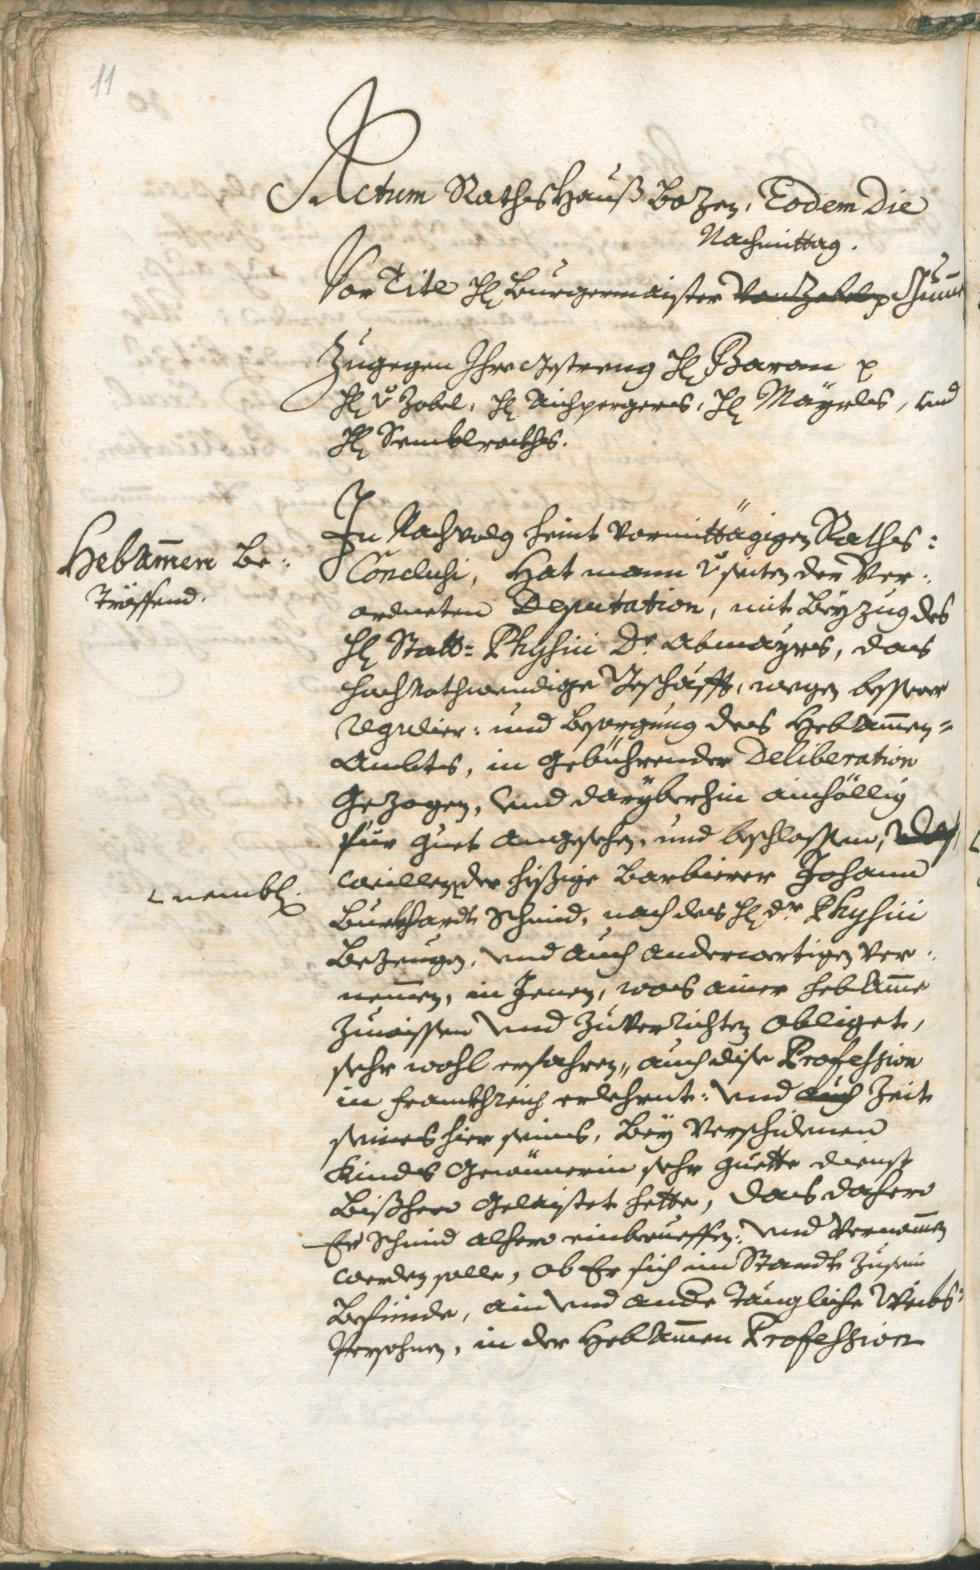 11
Actum RathsHauß Bozen, Eodem Die
Nachmittag.
Vor Titl H. Burgermaister von Zobel p
Zugegen Ihro Gestreng H. Baron p
H. v Zobel, H. Aichpergers, H. Mayrls, und
H. Semblrokhs.
Hebam̄en Be-
träffend.
In Nachvolg heint vormittägigen Raths:
Conclusi, Hat mann von seiten der Ver-
ordneten Deputation, mit Beyzug des
H. Statt: Physici Dr. Abmayrs, das
hochnothwendige Geschäfft, wegen besserer
Regulier: und besorgung des Hebam̄en-
Ambts, in gebührender Deliberation
gezogen, und darüberhin ainhöllig
für guet angesehen, und beschlossen, das
nembl.
weillen der hießige Barbierer Johann
Burkhardt Schmid, nach des H. dr. Physici
Bezeugen, und auch anderwertigen Ver-
nem̄en, in Jenen, was ainer hebam̄e
zuwissen und zuverrichten obliget,
sehr wohl erfahren, auch dise Profession
in Frankhreich erlehrnt: und auch Zeit
seines hier seins, bey verschidenen
Kinds Gewünerin sehr guette dienst
bißhero gelaistet hette, das dahero
Er Schmid alhero einberueffen: und vernom̄en
werden solle, ob Er sich im Standt zusein
befünde, ain und andre taugliche Weibs-
Persohnen, in der Hebam̄en Profession